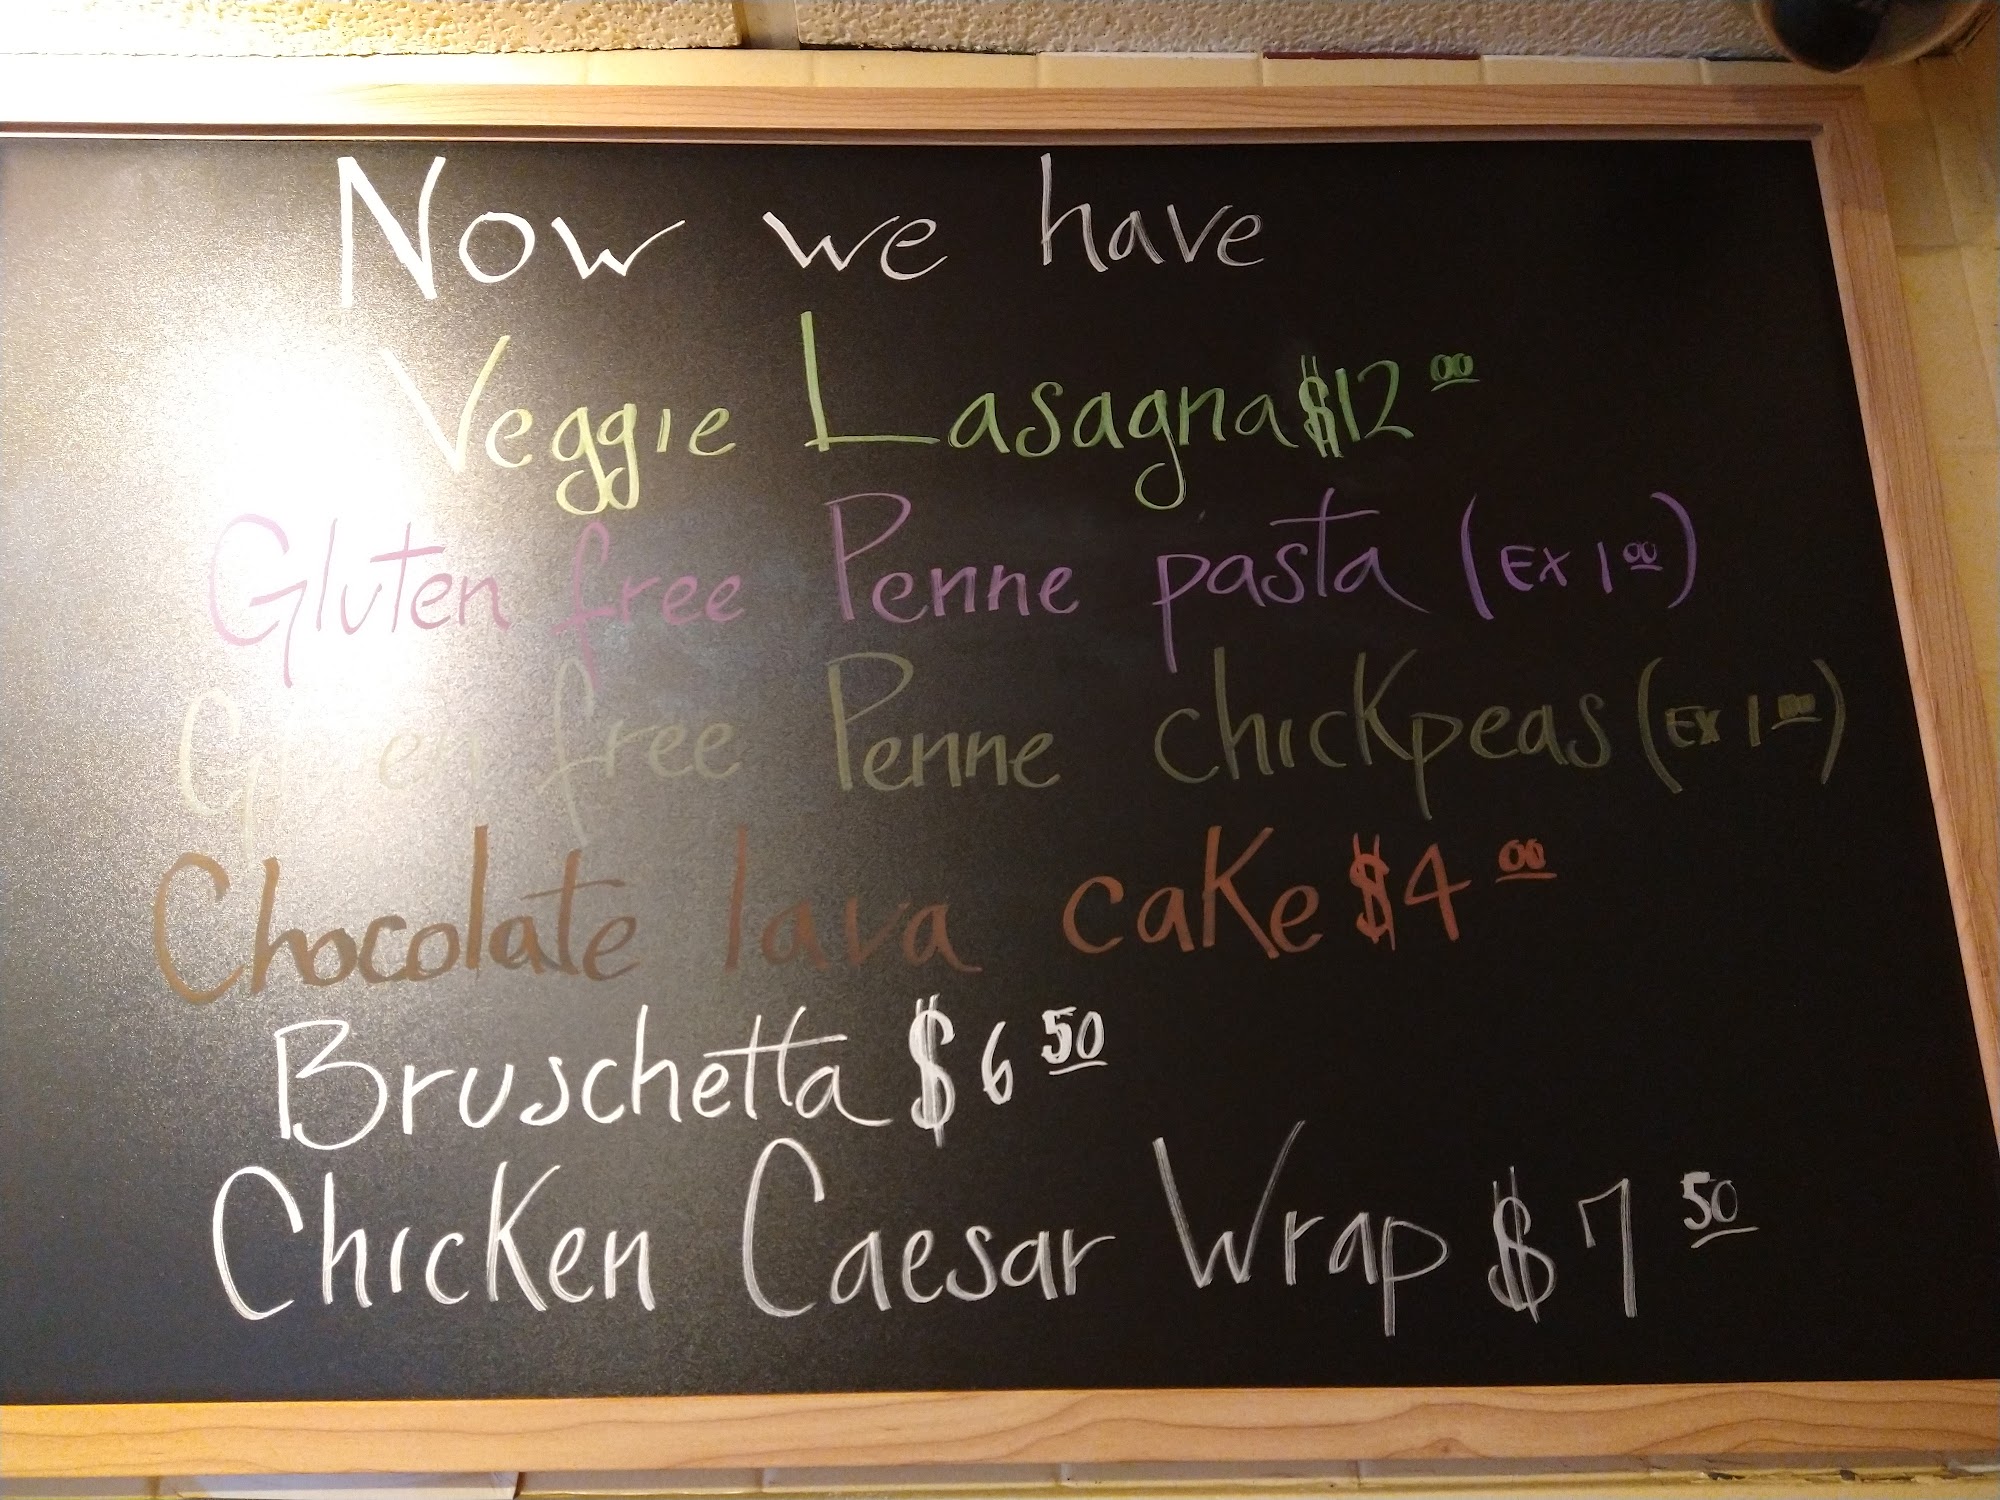 Now we have
Veggie Lasagna $12.00
Gluten free Penne pasta (EX 1.00)
Gluten free Penne chickpeas (EX 1.00)
Chocolate lava cake $4.00
Bruschetta $6.50
Chicken Caesar Wrap $7.50